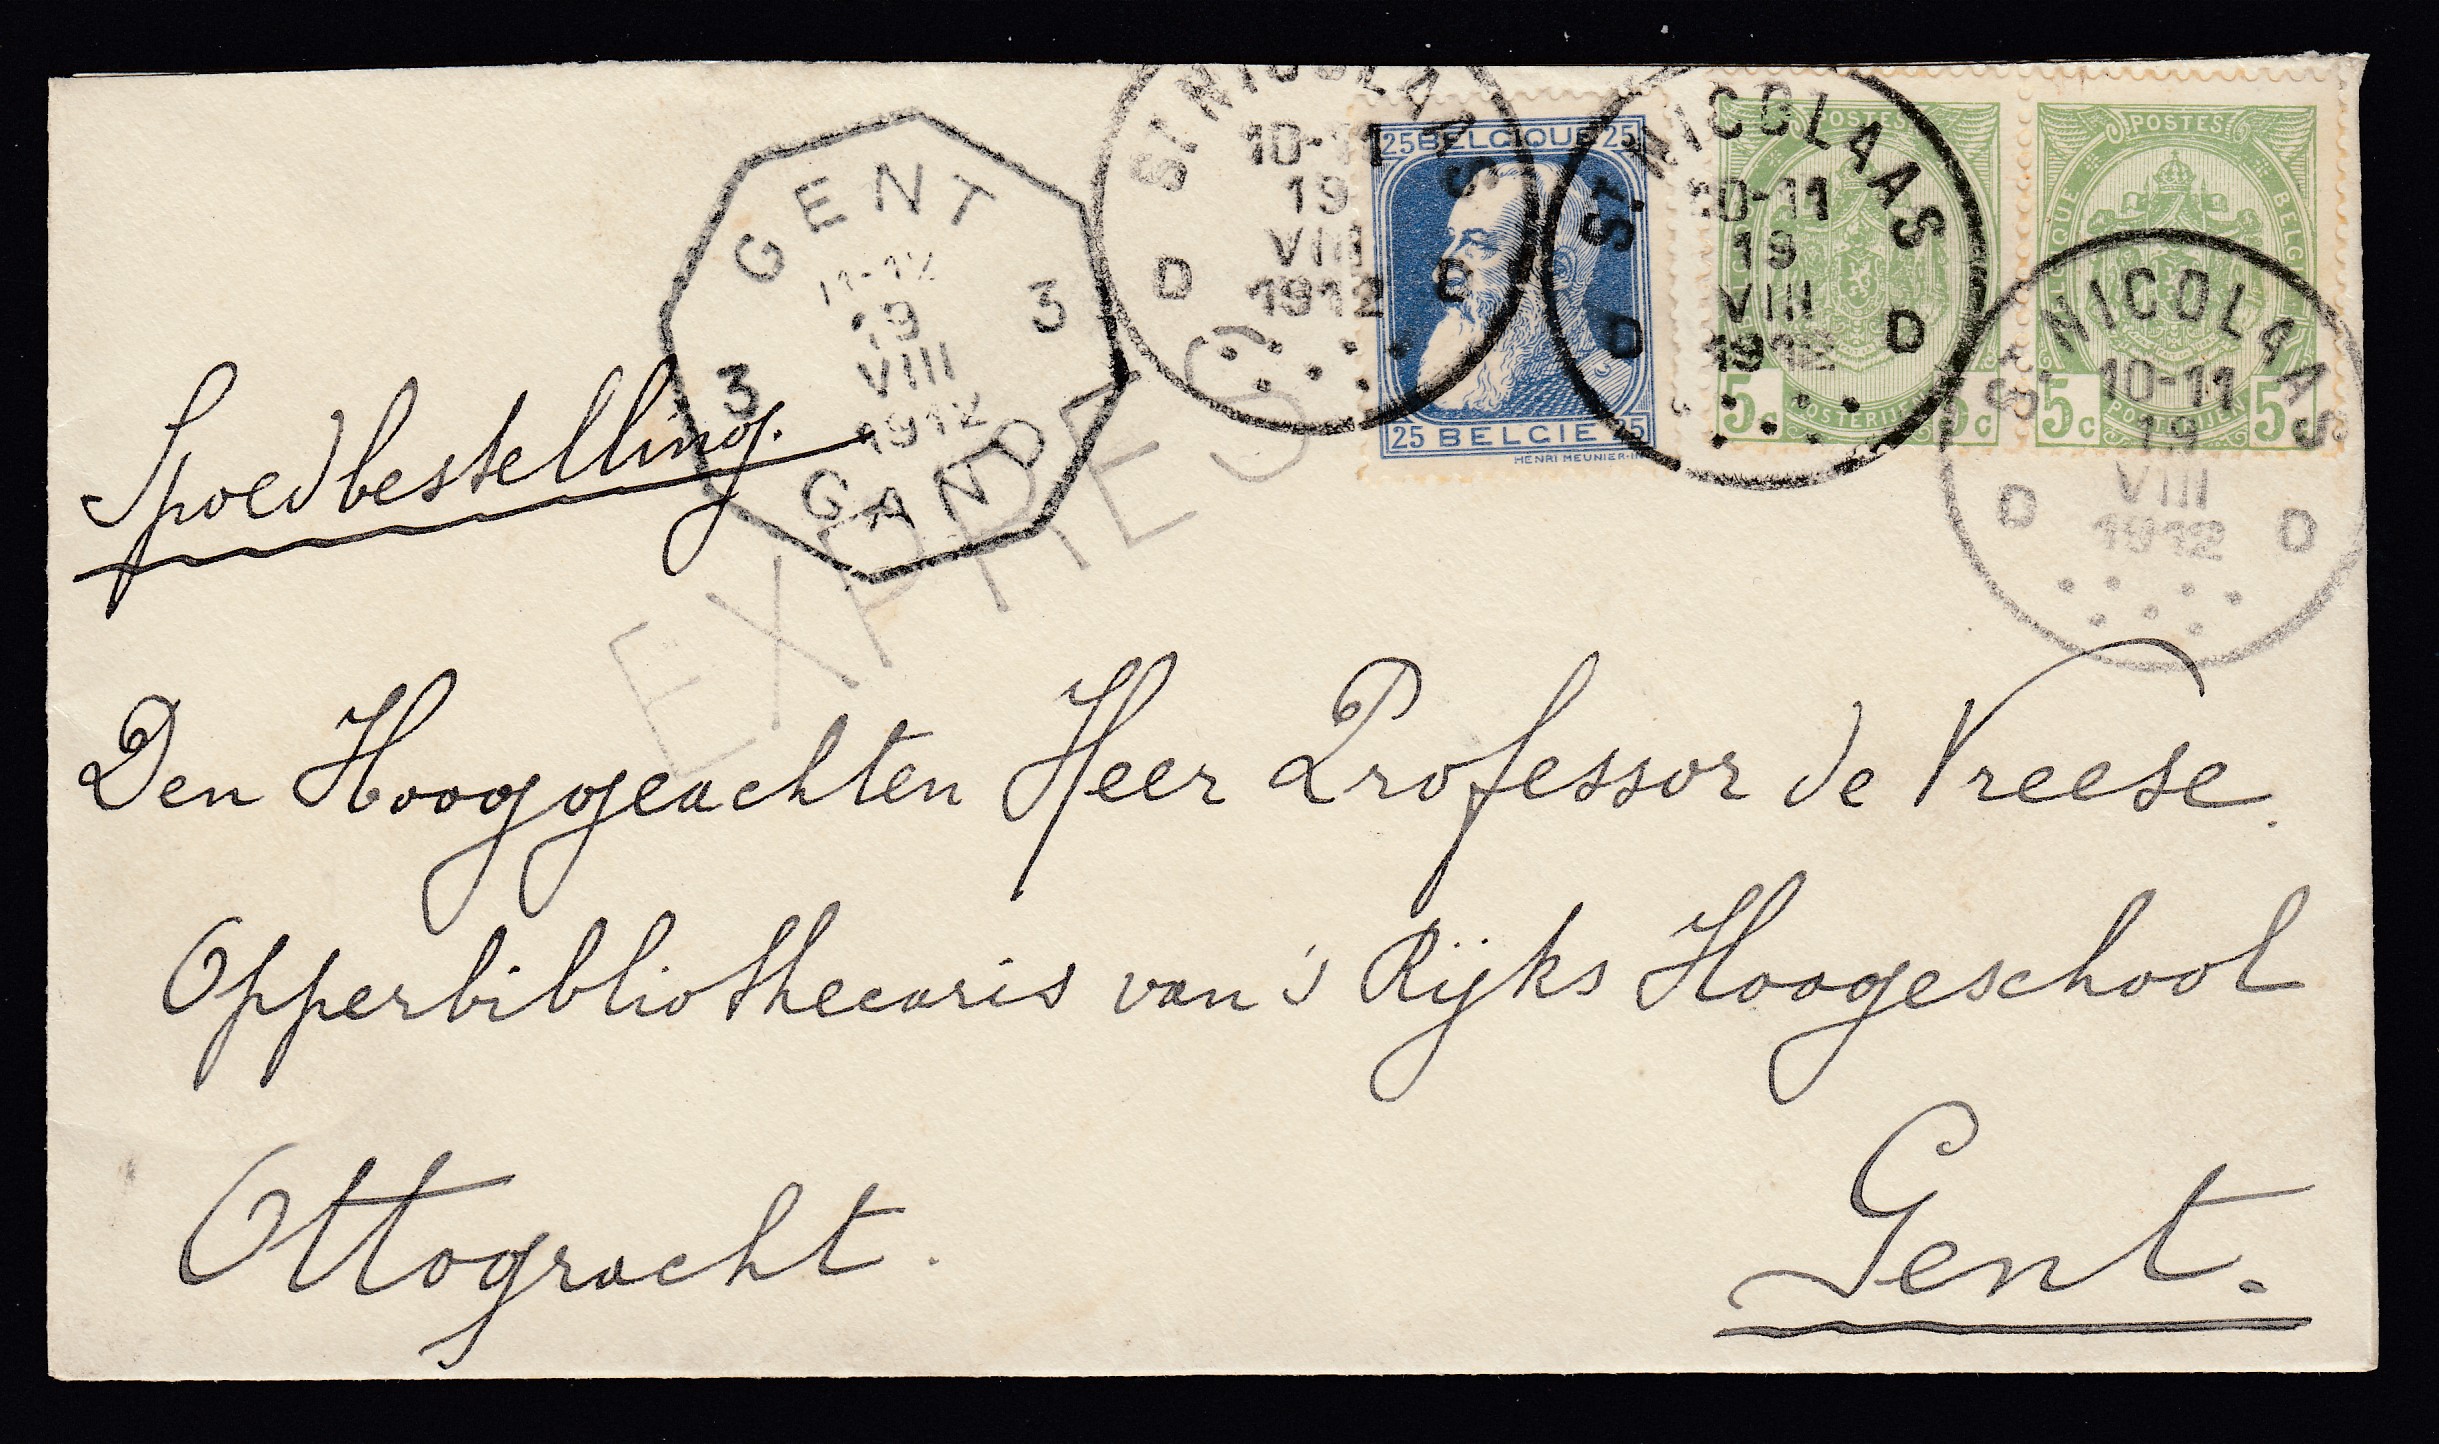 ST NICOLAAS
10-11
19
VIII
1912
D D
25 BELGIQUE 25
25 BELGIE 25
HENRI MEUNIER-IN
ST NICOLAAS
10-11
19
VIII
1912
D D
POSTES
5c POSTERIJEN 5c
POSTES
BELGIQUE BELG
5c POSTERIJEN 5c
ST NICOLAAS
10-11
19
VIII
1912
D D
GENT
11-12
19
VIII
1912
3 3
GAND
EXPRES
Spoedbestelling.
Den Hooggeachten Heer Professor de Vreese.
Opperbibliothecaris van 's Rijks Hoogeschool
Ottogracht.
Gent.